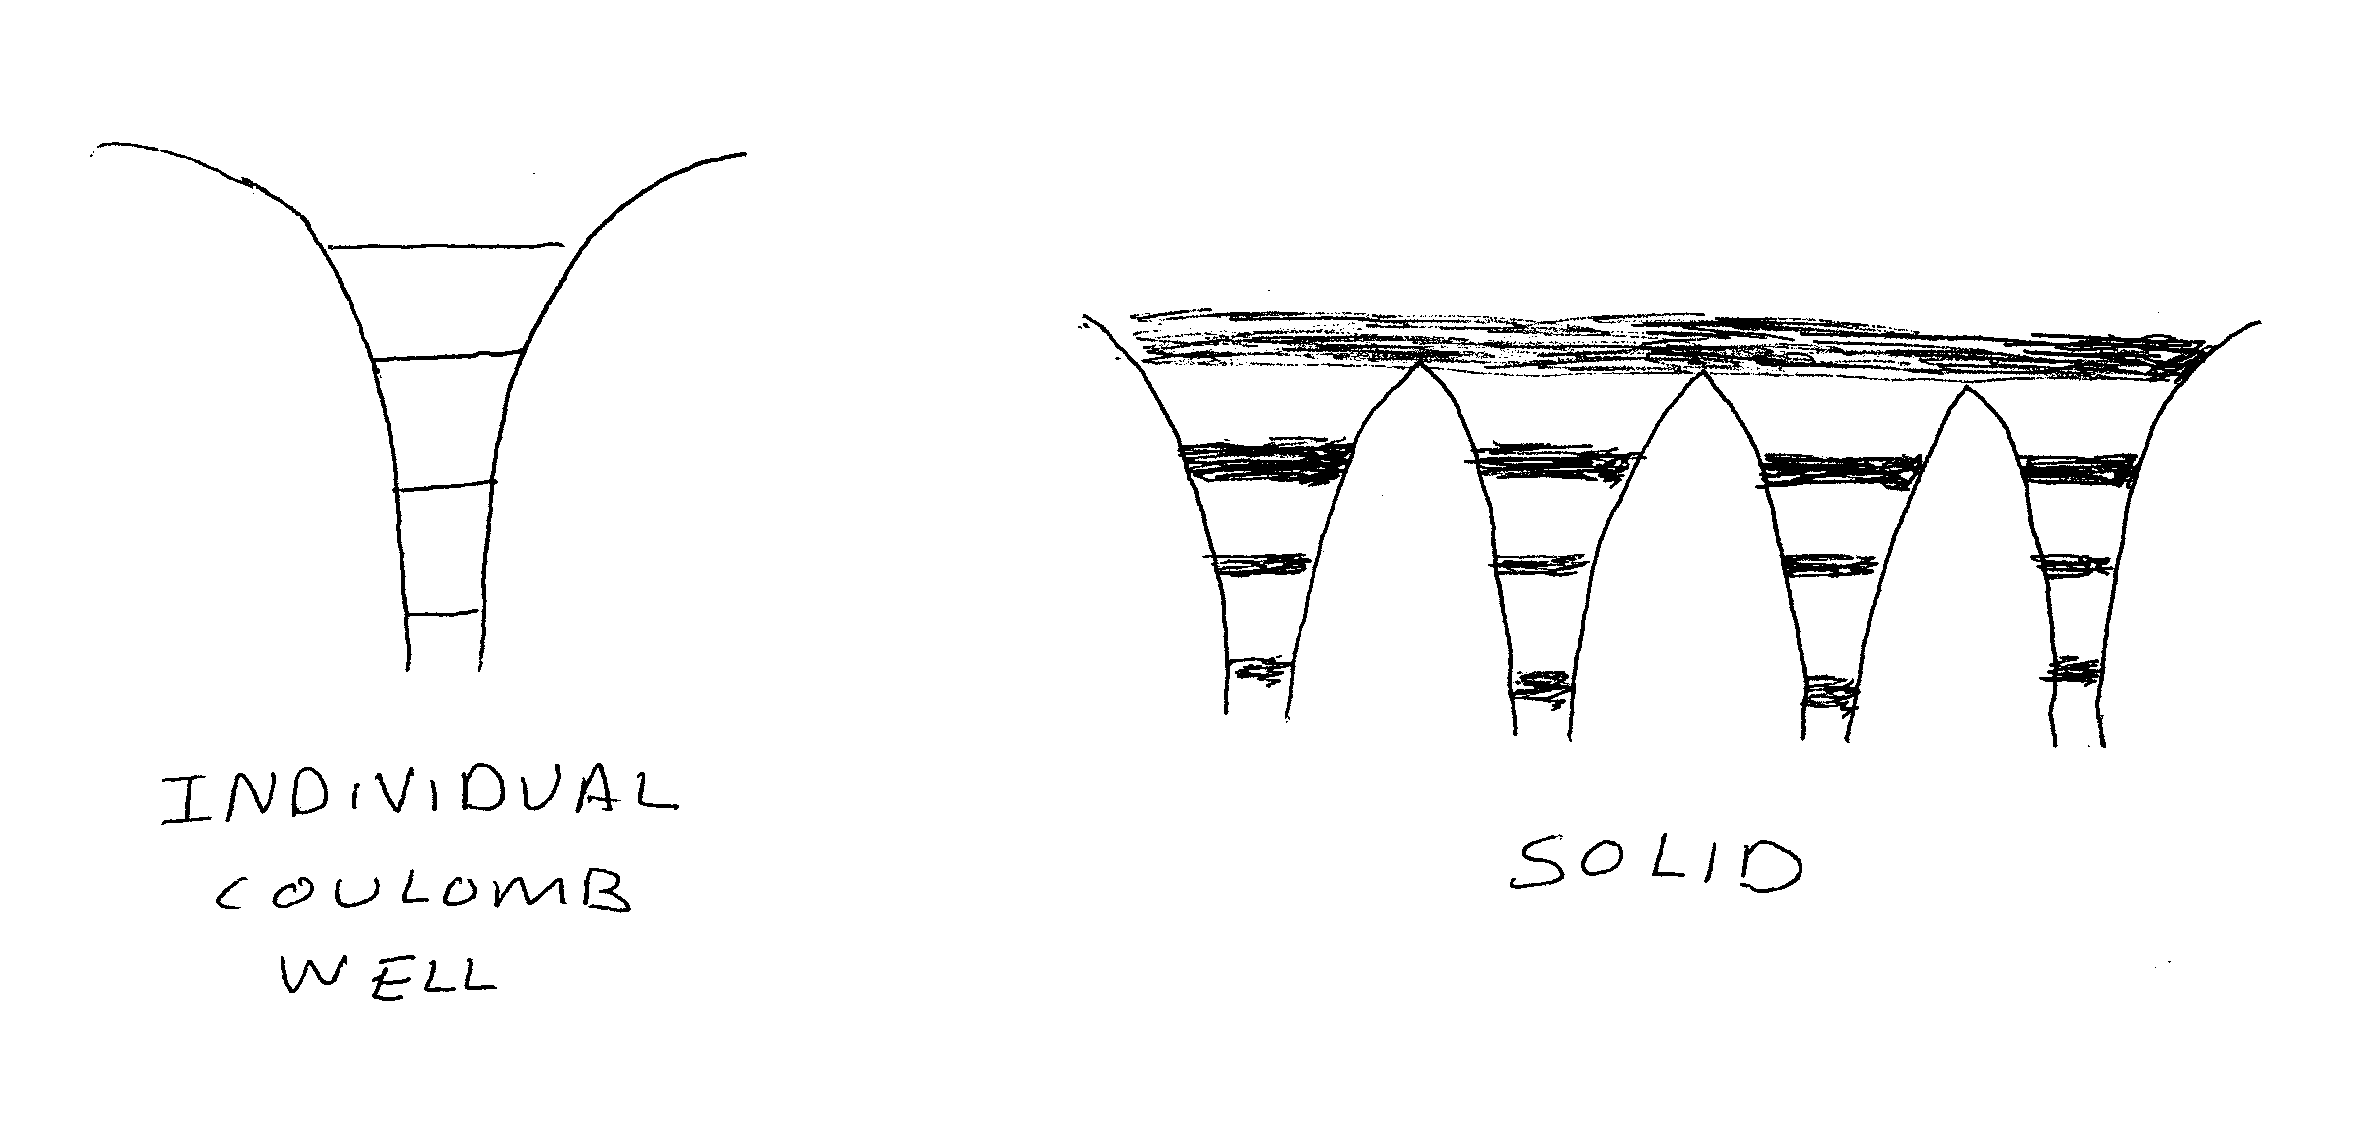 INDIVIDUAL
COULOMB
WELL
SOLID